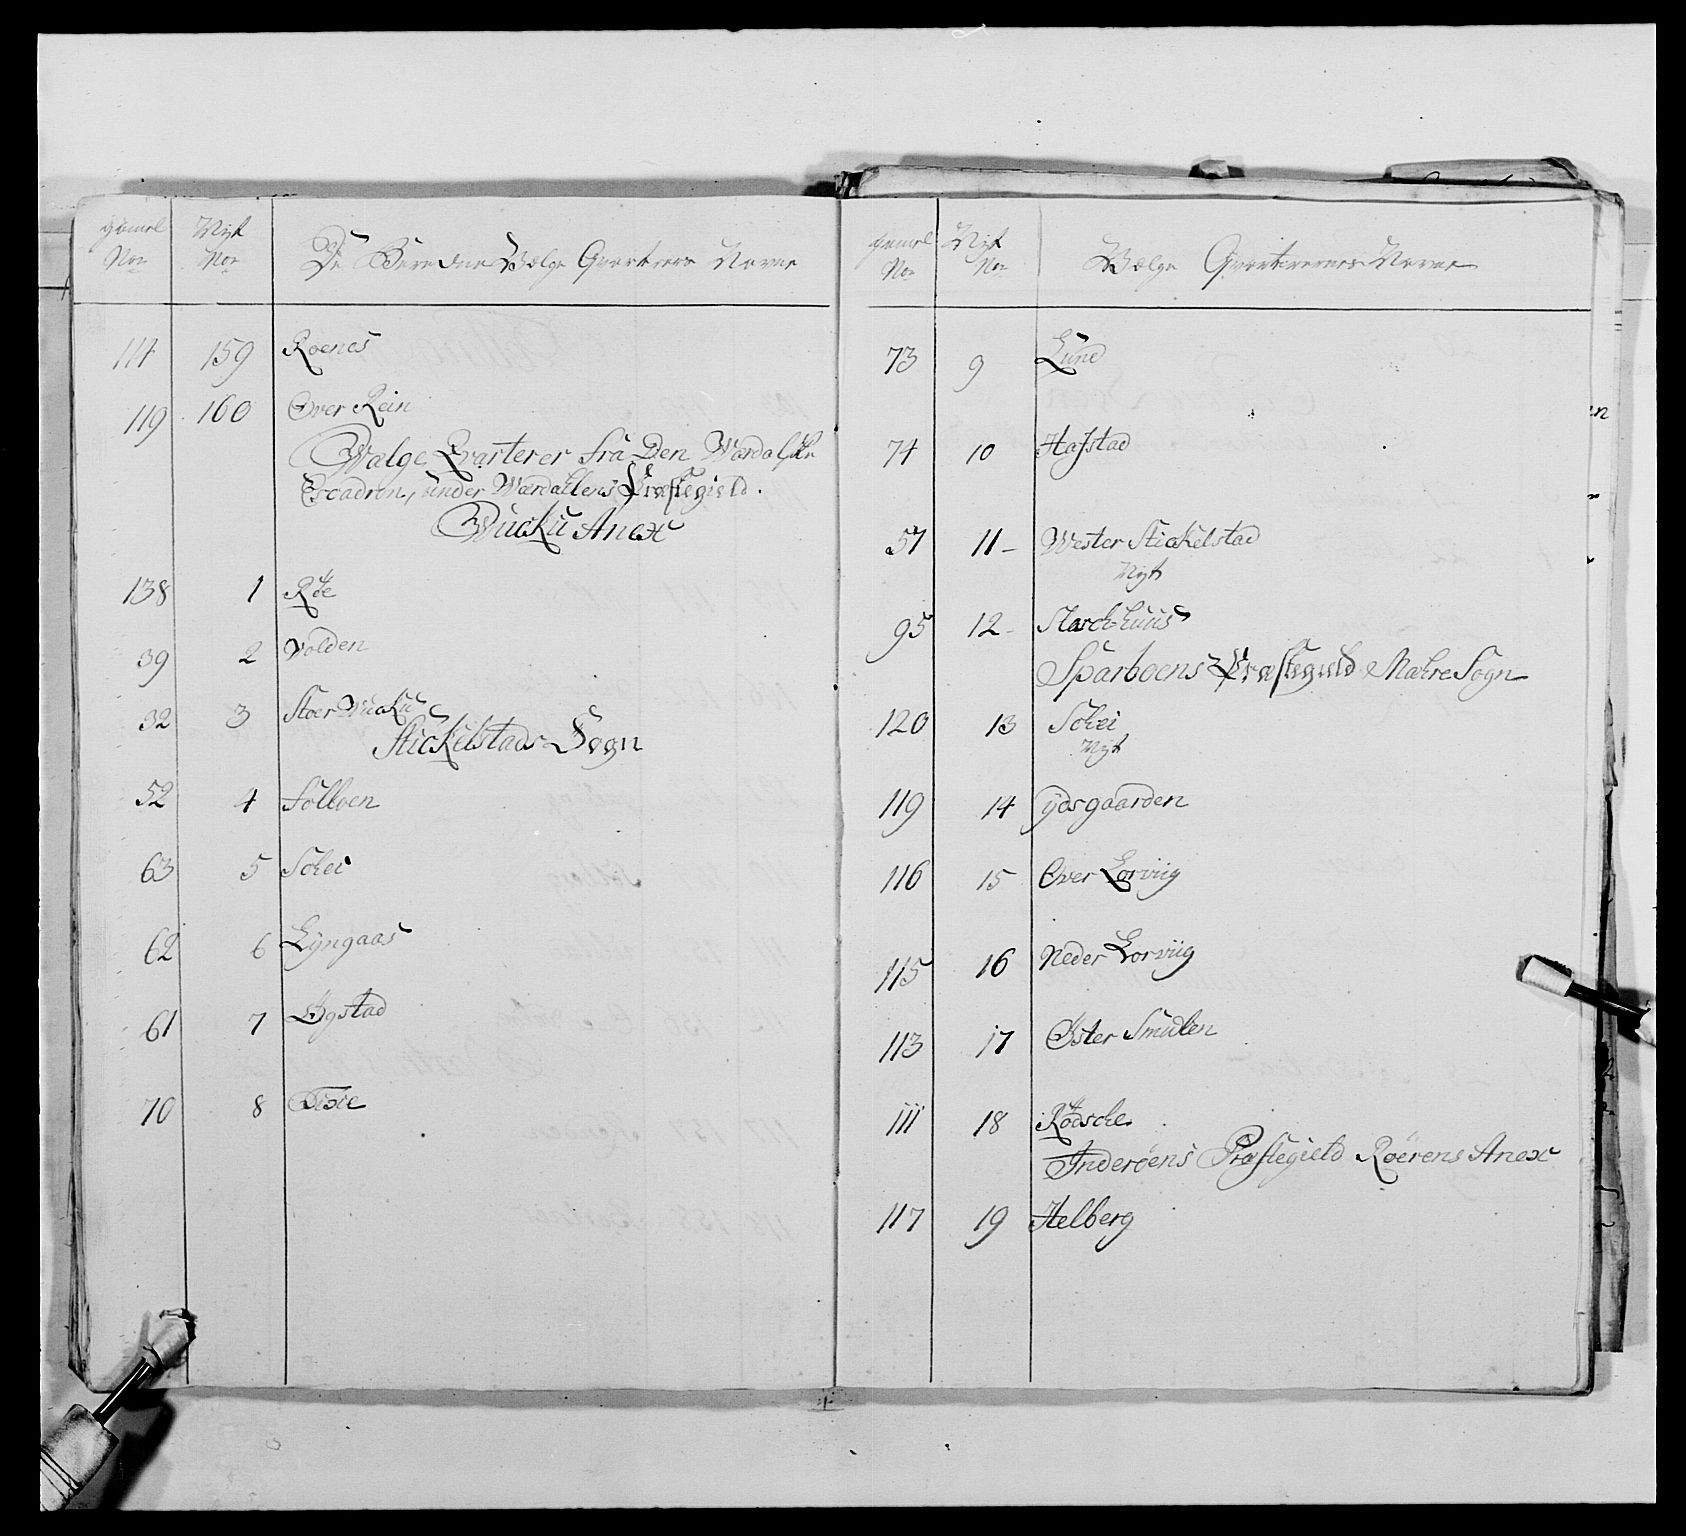 Gamel Nor
Nyt Nor
De Beredne Wælge Qvarterers Navne
114 159 Roenes
119 160 Over Rein
Wælge Qvarterer fra Den Wærdalske
Escadron, under Wærdallens Præstegield.
Wucku Anex
138 1 Röe
39 2 Volden
32 3 Stoer Wucku
Stickelstads Sogn
52 4 Folloen
63 5 Schei
62 6 Lyngaas
61 7 Øgstad
70 8
Gamel Nor
Nyt Nor
Wælge Qvarterernes Navne
73 9 Lund
74 10 Hafstad
57 11 - Wester Stickelstad
Nyt
95 12 - Slarckhuus
Sparboens Præstegield Mære Sogn
120 13 Schei
Nyt
119 14 ydsgaarden
116 15 Over Lorviig
115 16 Neder Lorviig
113 17 Øster Smulen
111 18 Rödsche
Inderöens Præstegield Röerens Anex
117 19 Helberg